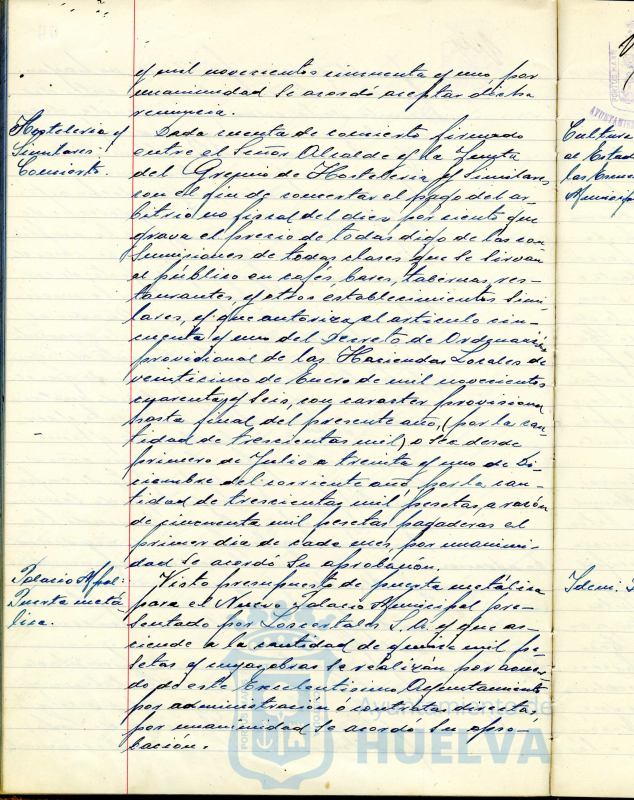 y mil novecientos cincuenta y uno, por
unanimidad se acordó aceptar dicha
renuncia.
Hostelería y
Similares:
Concierto.
Dada cuenta de concierto firmado
entre el Señor Alcalde y la Junta
del Gremio de Hostelería y Similares
con el fin de concertar el pago del ar-
bitrio no fiscal del diez por ciento que
grava el precio de todas digo de las con-
sumisiones de todas clases que se sirvan
al público en cafés, bares, tabernas, res-
taurantes, y otros establecimientos simi-
lares, y que autoriza el artículo cin-
cuenta y uno del Decreto de Ordenación
provisional de las Haciendas Locales de
veinticinco de Enero de mil novecientos
cuarenta y seis, con caracter provisional
hasta final del presente año, (por la can-
tidad de trescientas mil) o sea desde
primero de Julio a treinta y uno de Di-
ciembre del corriente año, por la can-
tidad de trescientas mil pesetas, a razón
de cincuenta mil pesetas pagaderas el
primer dia de cada mes, por unanimi-
dad se acordó su aprobación.
Palacio Mpal:
Puerta metá-
lica.
Visto presupuesto de puerta metálica
para el Nuevo Palacio Municipal pre-
sentado por Loscertales S.A. y que as-
ciende a la cantidad de quince mil pe-
setas y cuyas obras se realizan por acuer-
do de este Excelentísimo Ayuntamiento
por administración ó contrata directa,
por unanimidad se acordó su apro-
bación.
Cultura
al Estad
las Escue
Municip
Idem:
Ayuntamiento de
HUELVA